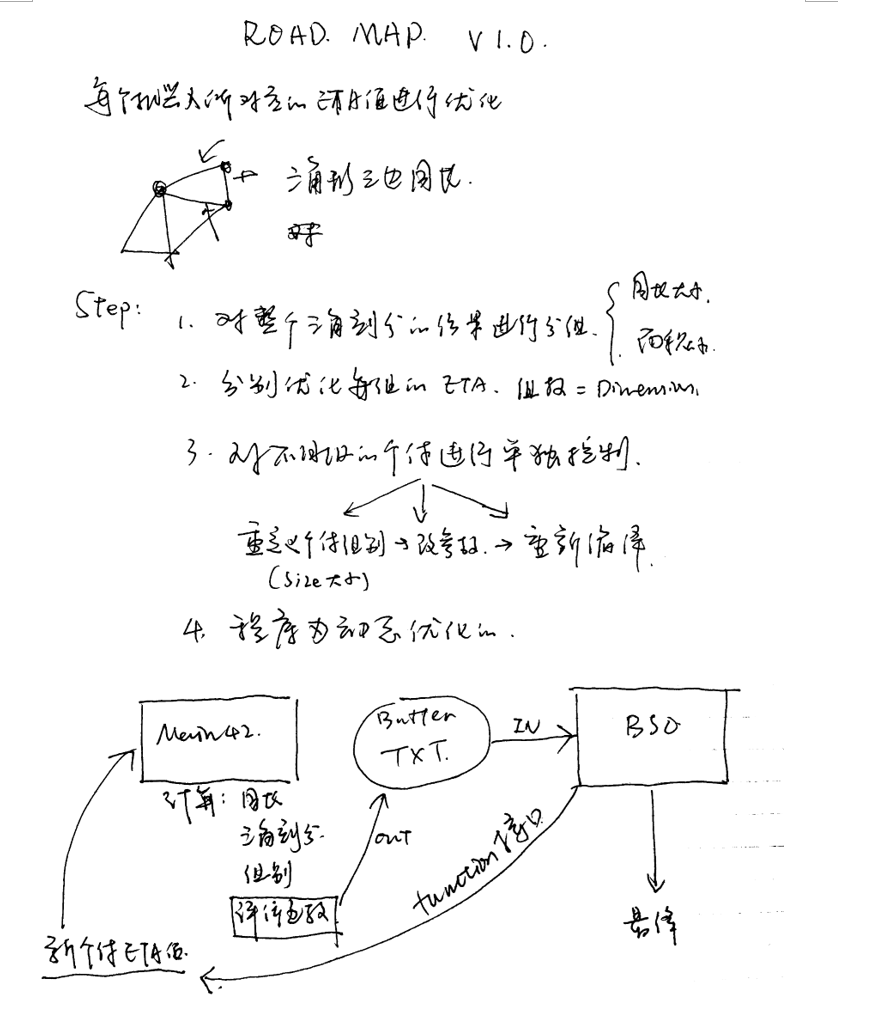 ROAD. MAP. V 1.0.
每个机器人所对应的ETA值进行优化
三角形三边周长.
Step:
1. 对整个三角剖分的结果进行分组.
周长大小.
面积大小.
2. 分别优化每组的ETA. 组数 = Dimension.
3. 对不同组的个体进行单独控制.
重定义个体组别 → 改参数. → 重新编译.
(Size大小)
4. 程序为动态优化的.
Main42.
Buffer
TXT.
IN
BSO
计算: 周长
三角剖分.
组别
评价函数
OUT
function 接口
新个体ETA值.
最终